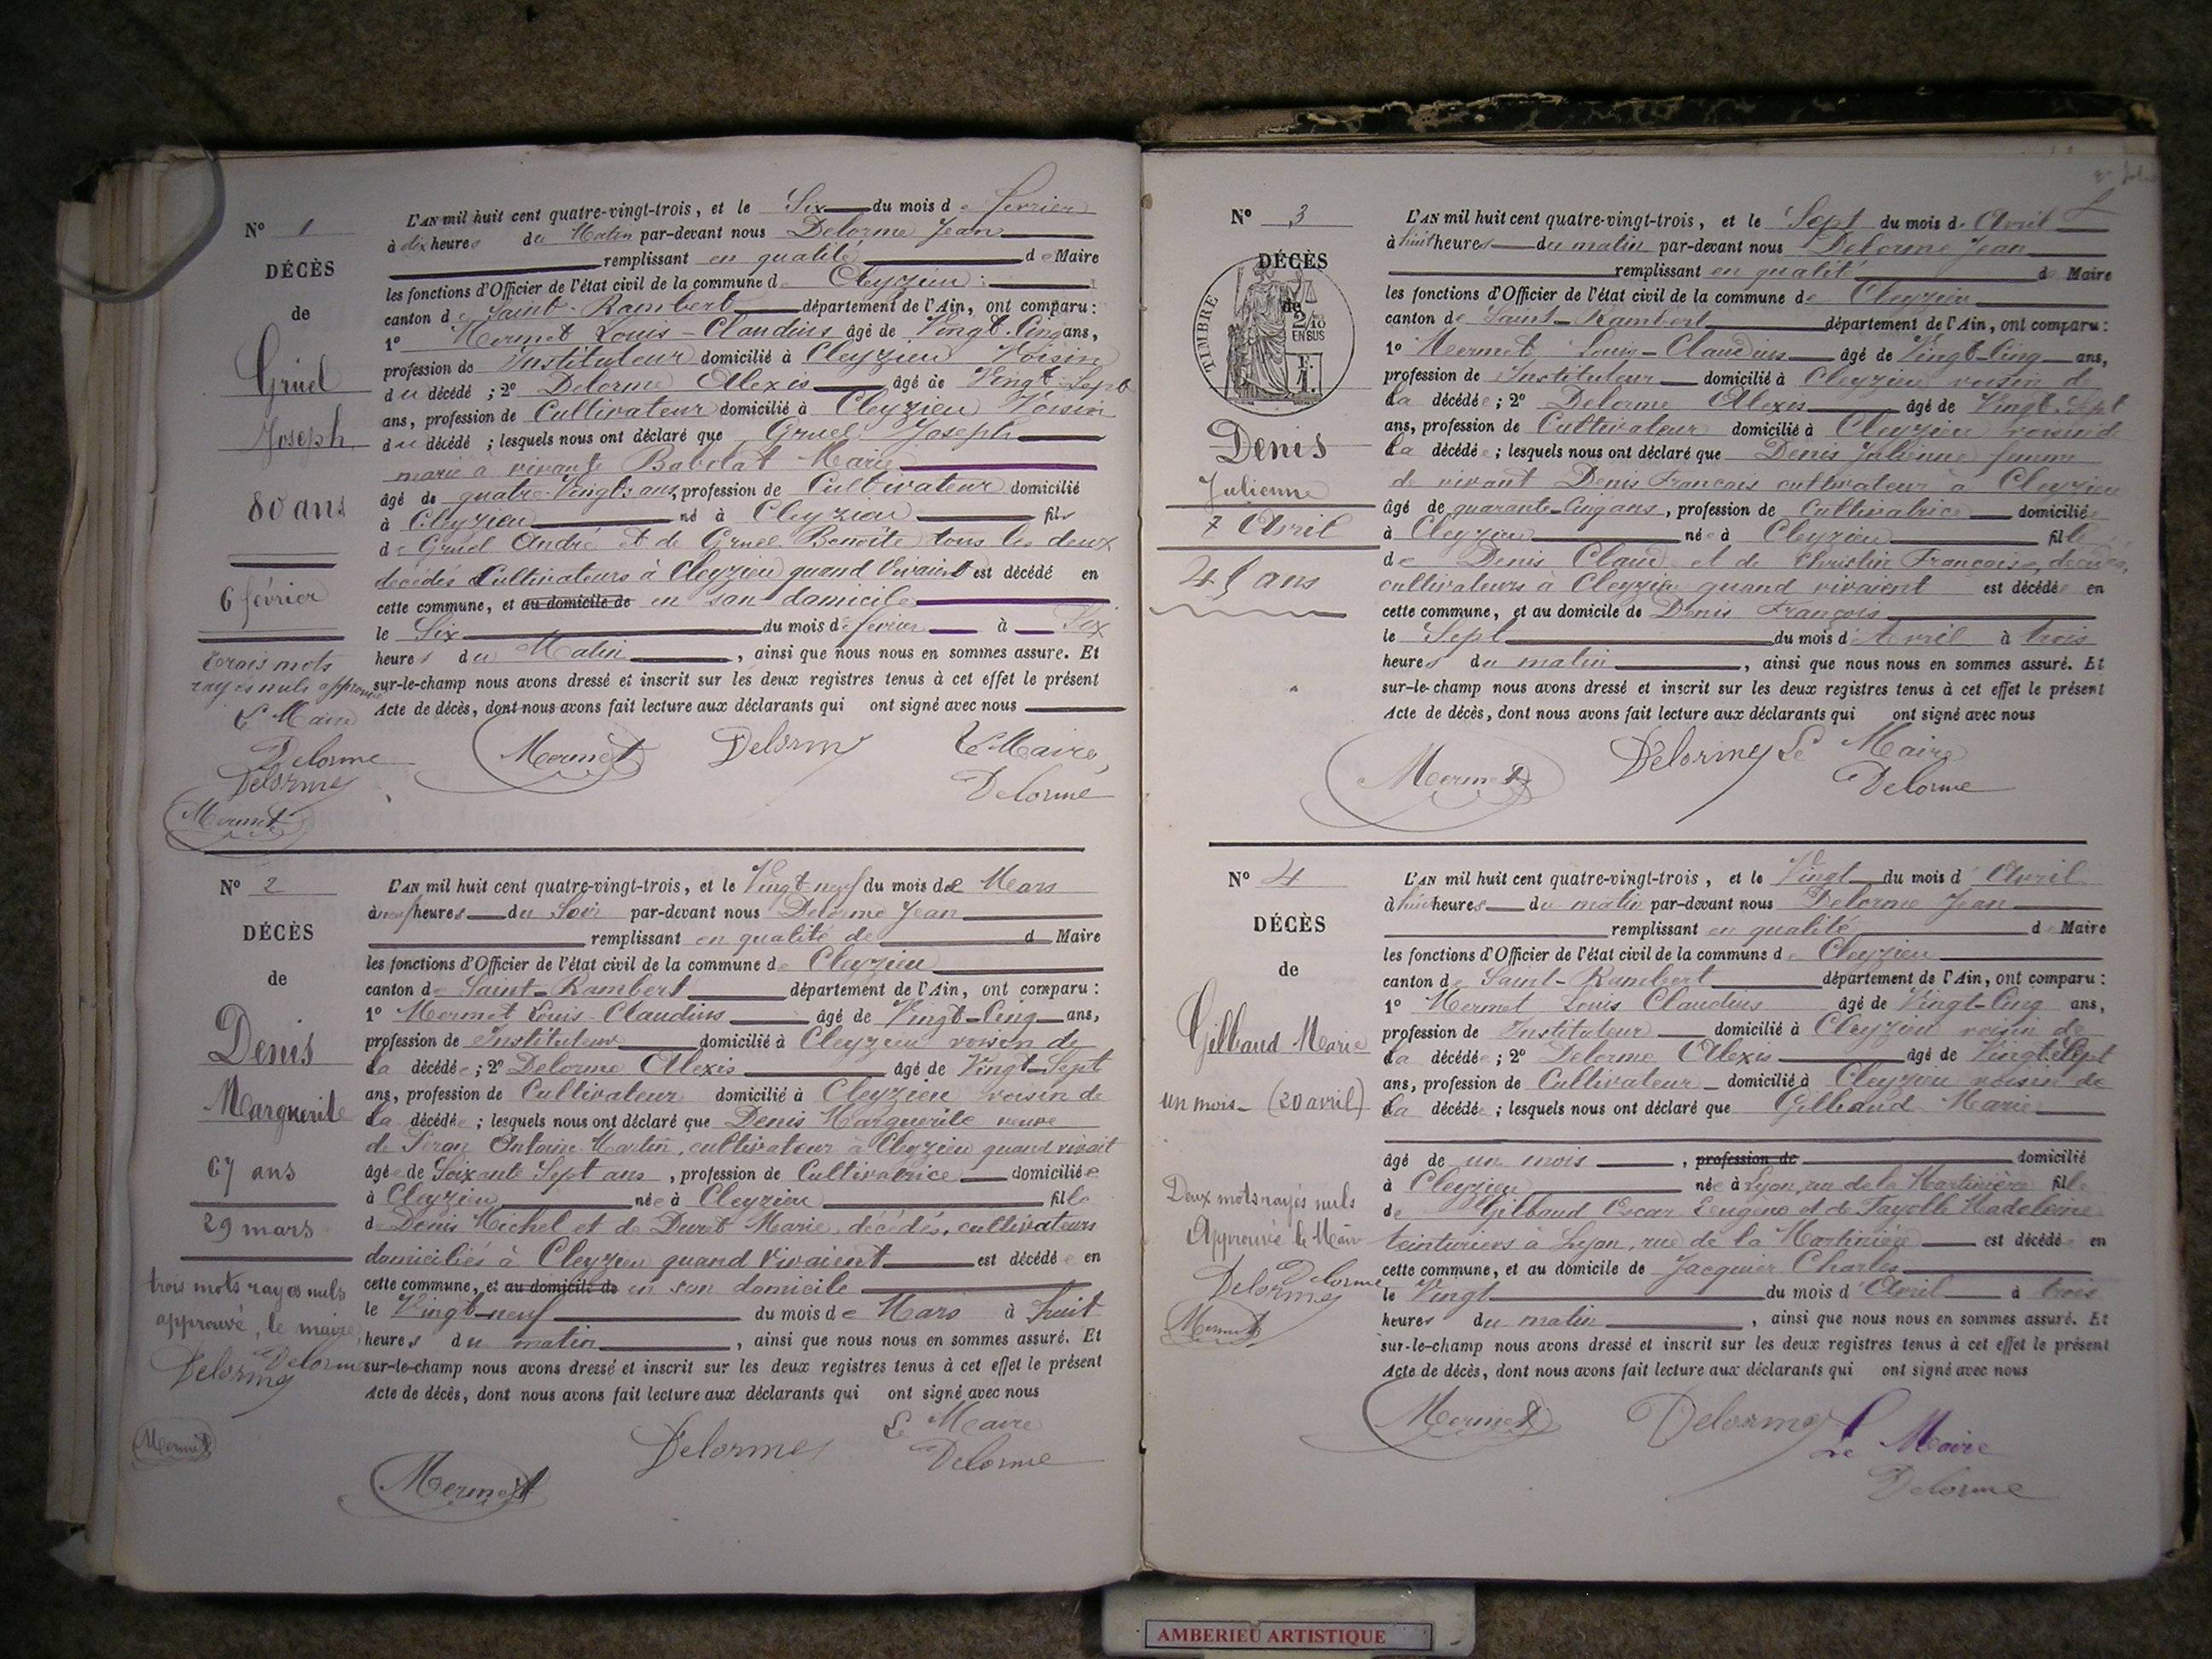 N° 1
DÉCÈS
de
Gruel
Joseph
80 ans
6 février
trois mots
rayés nuls approuvés
Le Maire
Delorme
Delorme
Mermet
L'AN mil huit cent quatre-vingt-trois, et le Six du mois de février
à dix heures du Matin par-devant nous Delorme Jean
remplissant en qualité de Maire
les fonctions d'Officier de l'état civil de la commune de Cleyzieu
canton de Saint-Rambert département de l'Ain, ont comparu :
1° Mermet Louis-Claudius âgé de Vingt-Cinq ans,
profession de Instituteur domicilié à Cleyzieu Voisin
du décédé ; 2° Delorme Alexis âgé de Vingt-Sept
ans, profession de Cultivateur domicilié à Cleyzieu Voisin
du décédé ; lesquels nous ont déclaré que Gruel Joseph
marié à vivante Babolat Marie
âgé de quatre-Vingts ans, profession de Cultivateur domicilié
à Cleyzieu né à Cleyzieu fils
de Gruel André et de Gruel Benoîte tous les deux
décédés Cultivateurs à Cleyzieu quand vivaient est décédé en
cette commune, et au domicile de en son domicile
le Six du mois de février à Six
heures du Matin, ainsi que nous nous en sommes assuré. Et
sur-le-champ nous avons dressé et inscrit sur les deux registres tenus à cet effet le présent
Acte de décès, dont nous avons fait lecture aux déclarants qui ont signé avec nous
Mermet Delorme Le Maire,
Delorme
N° 2
DÉCÈS
de
Denis
Marguerite
67 ans
29 mars
trois mots rayés nuls
approuvé, le maire
Delorme Delorme
Mermet
L'AN mil huit cent quatre-vingt-trois, et le Vingt-neuf du mois de Mars
à neuf heures du Soir par-devant nous Delorme Jean
remplissant en qualité de d Maire
les fonctions d'Officier de l'état civil de la commune de Cleyzieu
canton de Saint-Rambert département de l'Ain, ont comparu :
1° Mermet Louis-Claudius âgé de Vingt-Cinq ans,
profession de Instituteur domicilié à Cleyzieu voisin de
la décédée ; 2° Delorme Alexis âgé de Vingt-Sept
ans, profession de Cultivateur domicilié à Cleyzieu voisin de
la décédée ; lesquels nous ont déclaré que Denis Marguerite veuve
de Antoine Martin, cultivateur à Cleyzieu quand vivait
âgée de Soixante Sept ans, profession de Cultivatrice domiciliée
à Cleyzieu née à Cleyzieu fille
de Denis Michel et de Marie, décédés, cultivateurs
domiciliés à Cleyzieu quand Vivaient est décédée en
cette commune, et au domicile de en son domicile
le Vingt-neuf du mois de Mars à huit
heures du matin, ainsi que nous nous en sommes assuré. Et
sur-le-champ nous avons dressé et inscrit sur les deux registres tenus à cet effet le présent
Acte de décès, dont nous avons fait lecture aux déclarants qui ont signé avec nous
Mermet Delorme Le Maire
Delorme
N° 3
DÉCÈS
de
TIMBRE
2/10
EN SUS
Denis
Julienne
7 Avril
45 ans
L'AN mil huit cent quatre-vingt-trois, et le Sept du mois d'Avril
à huit heures du matin par-devant nous Delorme Jean
remplissant en qualité de Maire
les fonctions d'Officier de l'état civil de la commune de Cleyzieu
canton de Saint-Rambert département de l'Ain, ont comparu :
1° Mermet Louis-Claudius âgé de Vingt-Cinq ans,
profession de Instituteur domicilié à Cleyzieu voisin de
la décédée ; 2° Delorme Alexis âgé de Vingt-Sept
ans, profession de Cultivateur domicilié à Cleyzieu voisin de
la décédée ; lesquels nous ont déclaré que Denis Julienne femme
de vivant Denis François cultivateur à Cleyzieu
âgé de quarante-Cinq ans, profession de Cultivatrice domiciliée
à Cleyzieu née à Cleyzieu fille
de Denis Claude et de Christin Françoise, décédés,
cultivateurs à Cleyzieu quand vivaient est décédée en
cette commune, et au domicile de Denis François
le Sept du mois d'Avril à trois
heures du matin, ainsi que nous nous en sommes assuré. Et
sur-le-champ nous avons dressé et inscrit sur les deux registres tenus à cet effet le présent
Acte de décès, dont nous avons fait lecture aux déclarants qui ont signé avec nous
Mermet Delorme Le Maire
Delorme
N° 4
DÉCÈS
de
Gilbaud Marie
un mois - (20 avril)
Deux mots rayés nuls
Approuvé le Maire
Delorme
Delorme
Mermet
L'AN mil huit cent quatre-vingt-trois, et le Vingt du mois d'Avril
à huit heures du matin par-devant nous Delorme Jean
remplissant en qualité de Maire
les fonctions d'Officier de l'état civil de la commune de Cleyzieu
canton de Saint-Rambert département de l'Ain, ont comparu :
1° Mermet Louis Claudius âgé de Vingt-Cinq ans,
profession de Instituteur domicilié à Cleyzieu voisin de
la décédée ; 2° Delorme Alexis âgé de Vingt-Sept
ans, profession de Cultivateur domicilié à Cleyzieu voisin de
la décédée ; lesquels nous ont déclaré que Gilbaud Marie
âgé de un mois, profession de domicilié
à Cleyzieu née à Lyon, rue de la Martinière fille
de Gilbaud Oscar Eugène et de Fayolle Madeleine
teinturiers à Lyon, rue de la Martinière est décédée en
cette commune, et au domicile de Jacquier Charles
le Vingt du mois d'Avril à trois
heures du matin, ainsi que nous nous en sommes assuré. Et
sur-le-champ nous avons dressé et inscrit sur les deux registres tenus à cet effet le présent
Acte de décès, dont nous avons fait lecture aux déclarants qui ont signé avec nous
Mermet Delorme
Le Maire
Delorme
AMBERIEU ARTISTIQUE